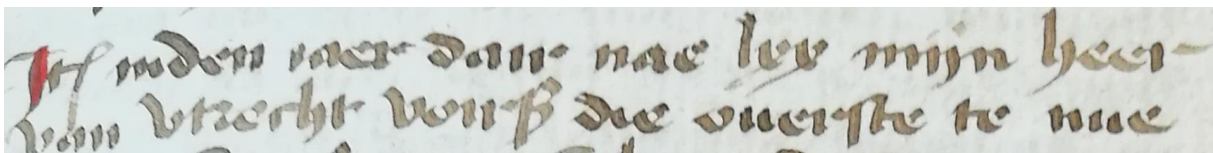 Itē inden iaer dair nae lxx mijn heer
van vtrecht voirs die ouerste te nue